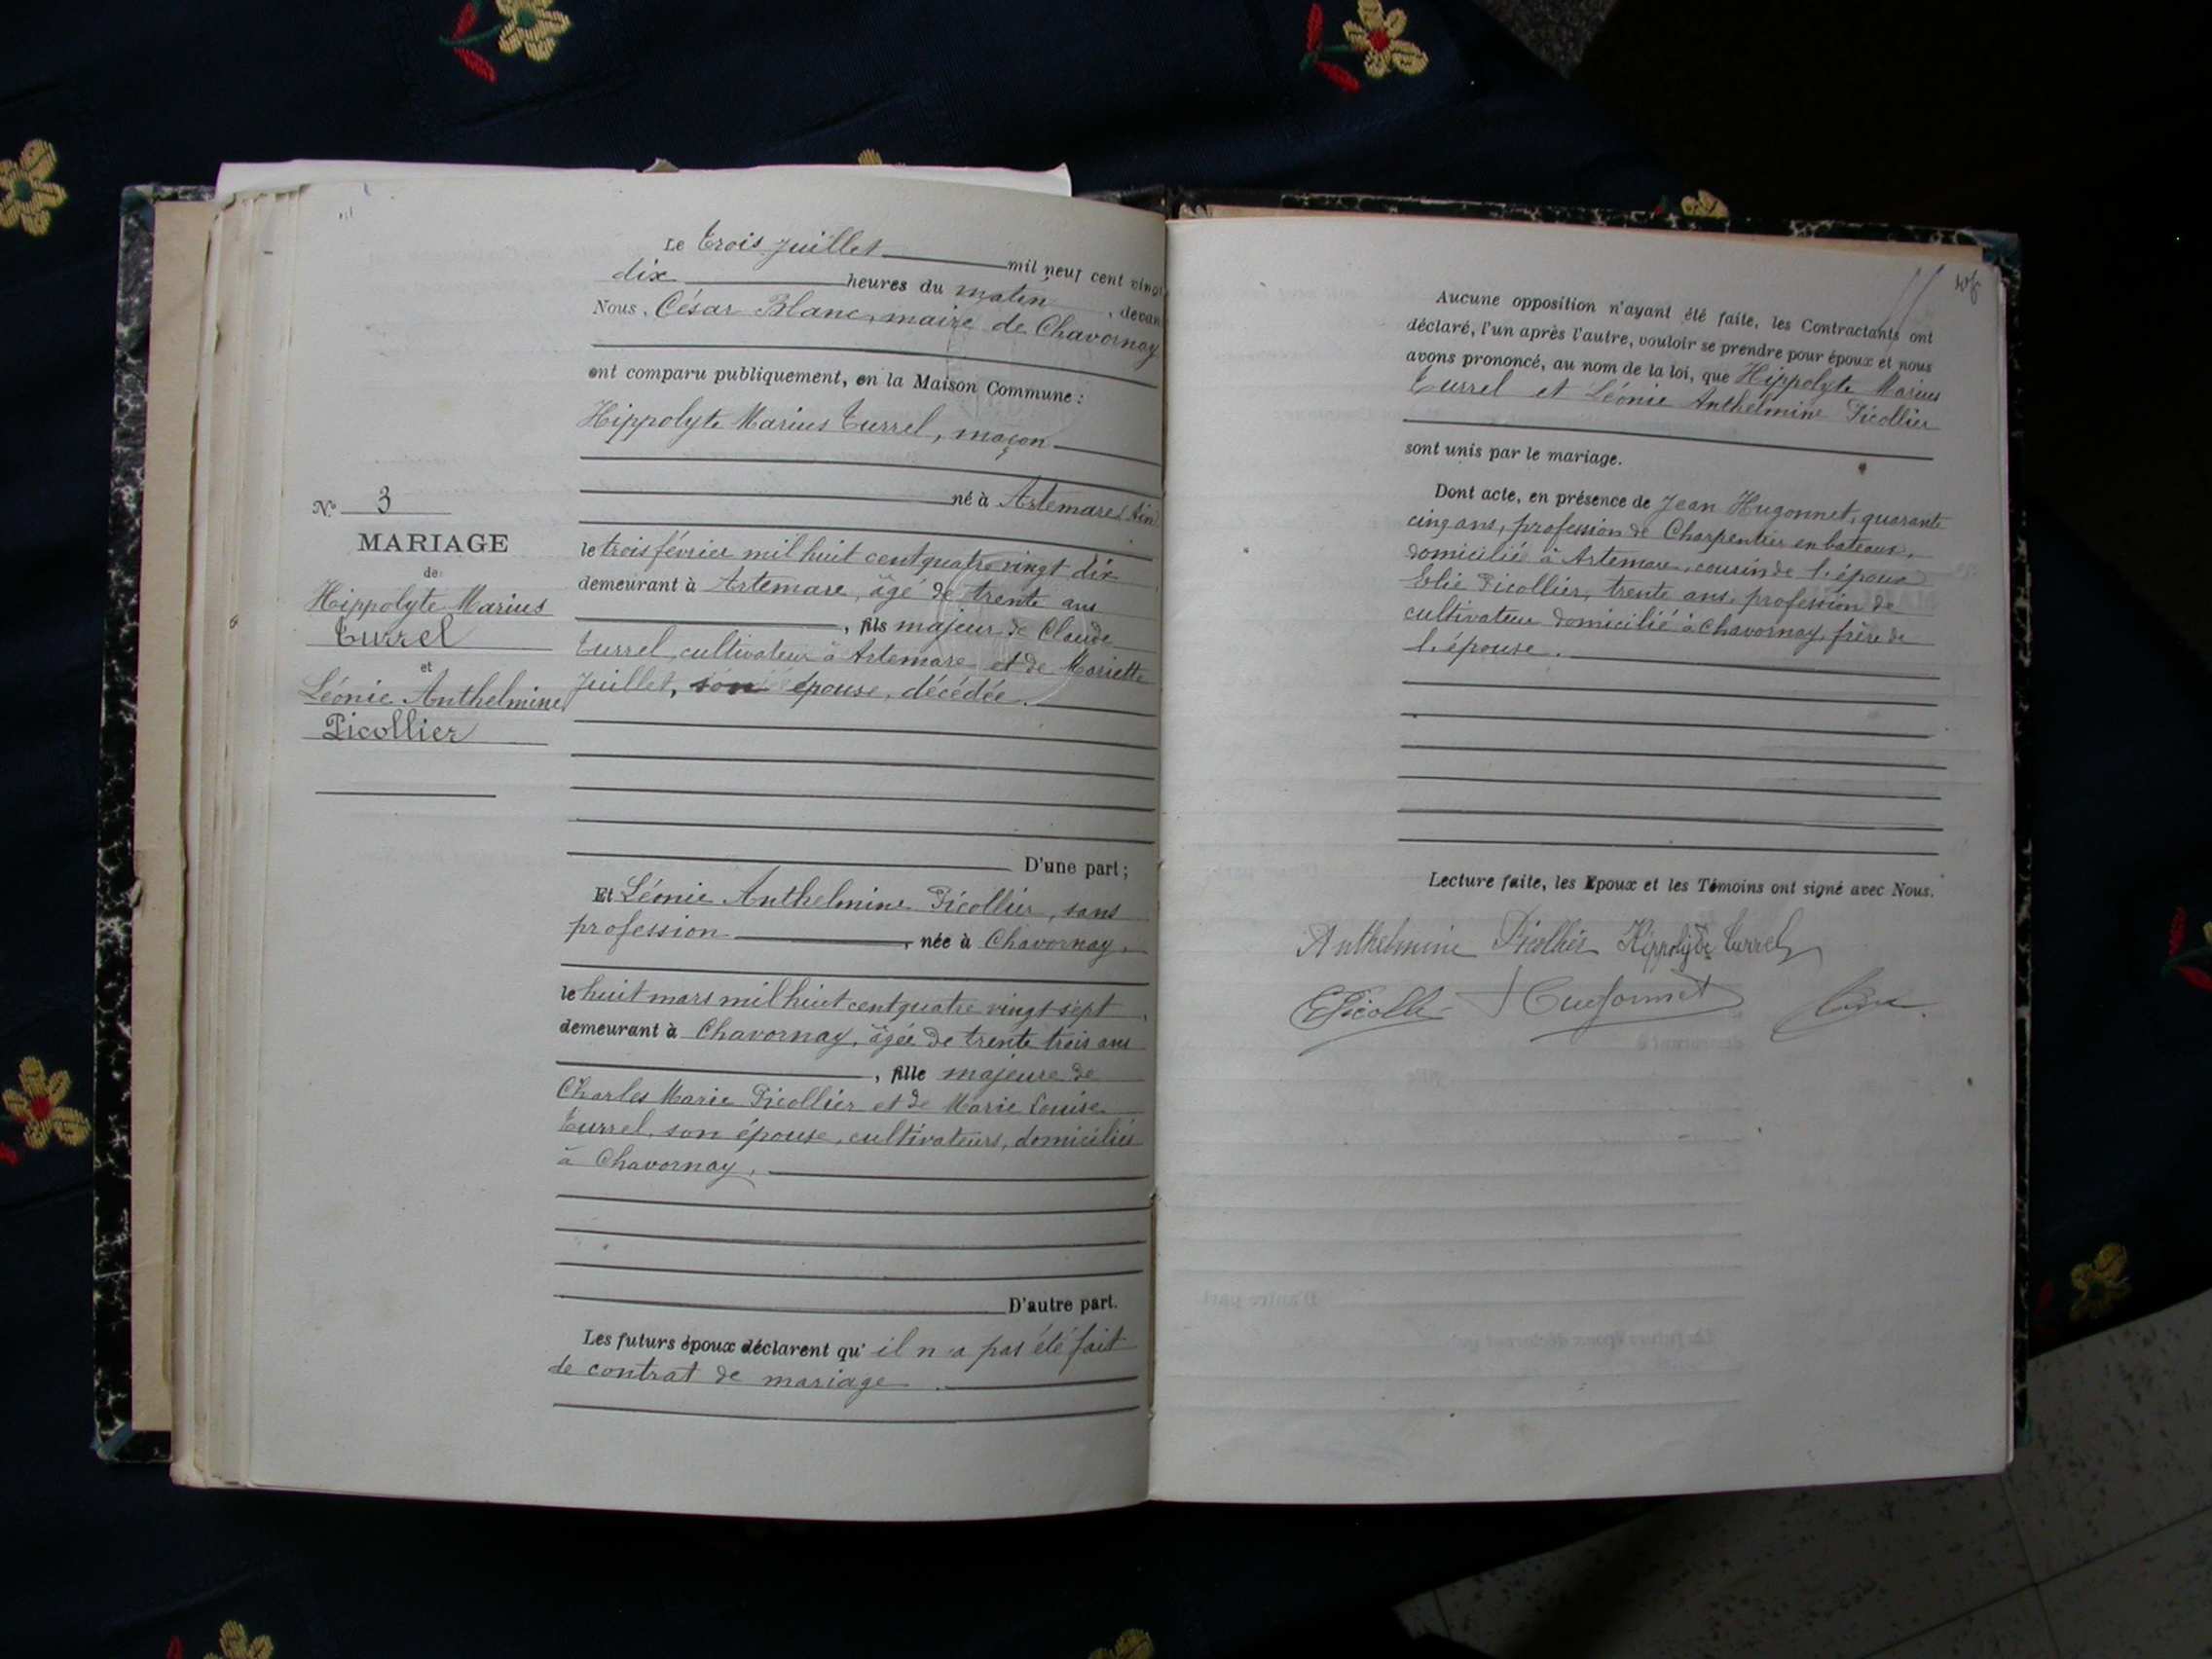 Le trois juillet mil neuf cent vingt
dix heures du matin, devan
Nous, César Blanc, maire de Chavornay
ont comparu publiquement, en la Maison Commune :
Hippolyte Marius Turrel, maçon
né à Artemare (Ain)
le trois février mil huit cent quatre vingt dix
demeurant à Artemare, âgé de trente ans
, fils majeur de Claude
Turrel, cultivateur à Artemare et de Mariette
Juillet, son épouse, décédée.
N° 3
MARIAGE
de
Hippolyte Marius
Turrel
et
Léonie Anthelmine
Picollier
D'une part ;
Et Léonie Anthelmine Picollier, sans
profession, née à Chavornay,
le huit mars mil huit cent quatre vingt sept
demeurant à Chavornay, âgée de trente trois ans
, fille majeure de
Charles Marie Picollier et de Marie Louise
Turrel, son épouse, cultivateurs, domiciliés
à Chavornay,
D'autre part.
Les futurs époux déclarent qu'il n'a pas été fait
de contrat de mariage.
Aucune opposition n'ayant été faite, les Contractants ont
déclaré, l'un après l'autre, vouloir se prendre pour époux et nous
avons prononcé, au nom de la loi, que Hippolyte Marius
Turrel et Léonie Anthelmine Picollier
sont unis par le mariage.
Dont acte, en présence de Jean Hugonnet, quarante
cinq ans, profession de Charpentier en bateaux,
domicilié à Artemare, cousin de l'époux
Elie Picollier, trente ans, profession de
cultivateur domicilié à Chavornay, frère de
l'épouse.
Lecture faite, les Epoux et les Témoins ont signé avec Nous.
Anthelmine Picollier Hippolyte Turrel
EPicollier Hugonnet